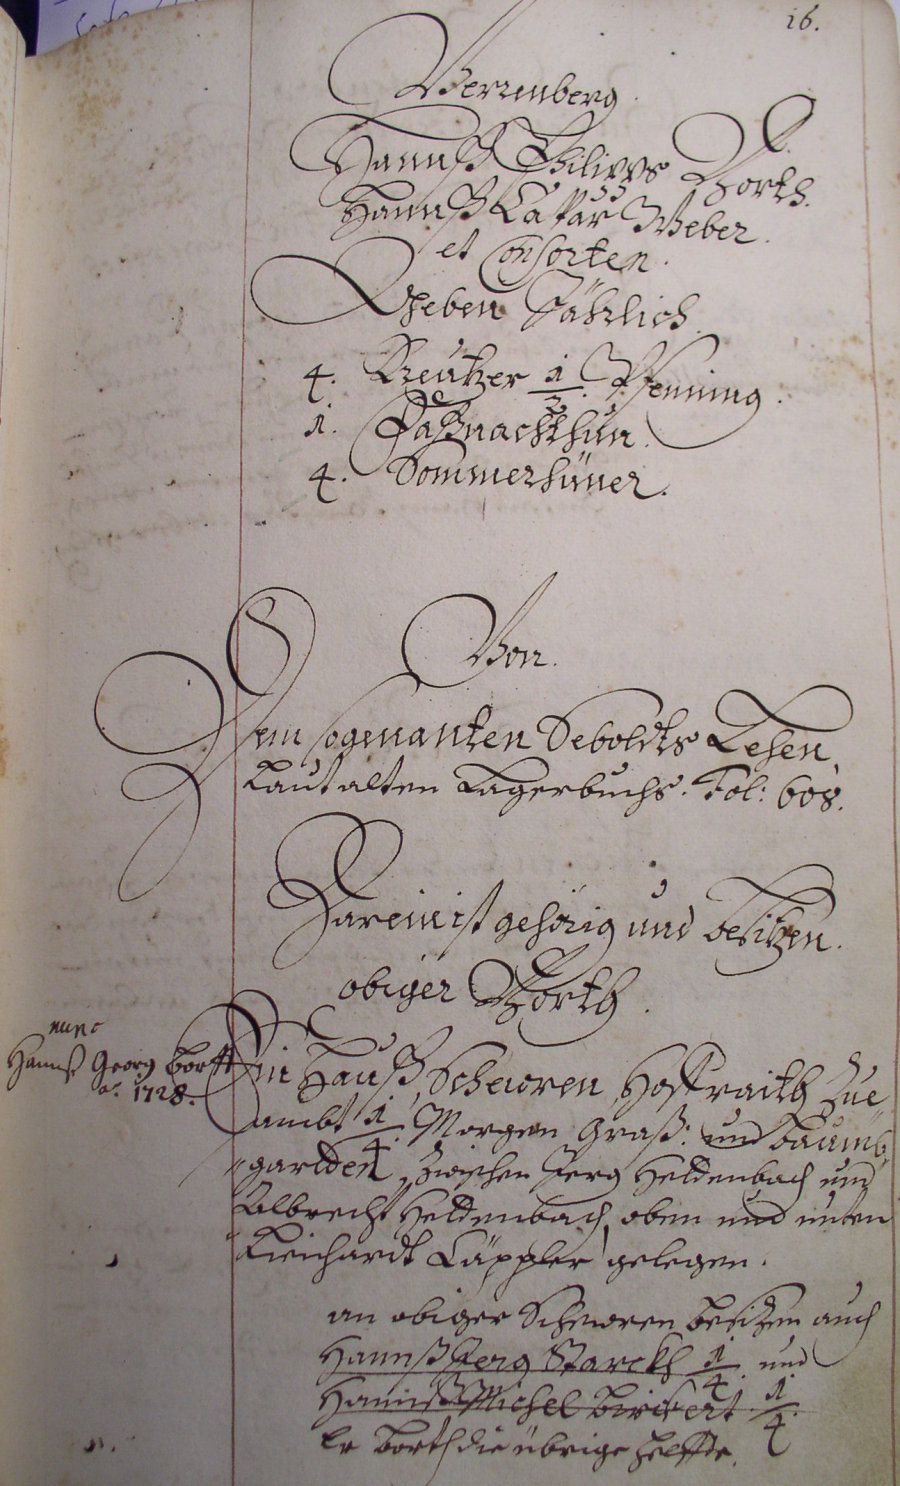 16.
Verrenberg
Hannß Philipps Borth.
Hannß Caspar Weber.
et Consorten.
Geben Jährlich
4. Kreützer 1/2. Pfenning.
1. Faßnachthun.
4. Sommerhüner.
Von.
Dem sogenanten Seboldts Lehen,
Laut alten Lagerbuchs. Fol: 608.
Darein ist gehörig und besitzen.
obiger Borth.
nunc
Hannß Georg Borth
ao. 1728.
Ein Hauß, Schewren, Hoffraith Zue„
sambt 1/4. Morgen Graß: und Baumb„
„gartten, zwischen Jerg Heldenbach und
Albrecht Heldenbach, oben und unten
Reichardt Cäppler gelegen.
an obiger Schewren besitzen auch
Hannß Jerg Starckh 1/4. und
Hannß Michel Birckert 1/4.
Er Borth die übrige helffte.